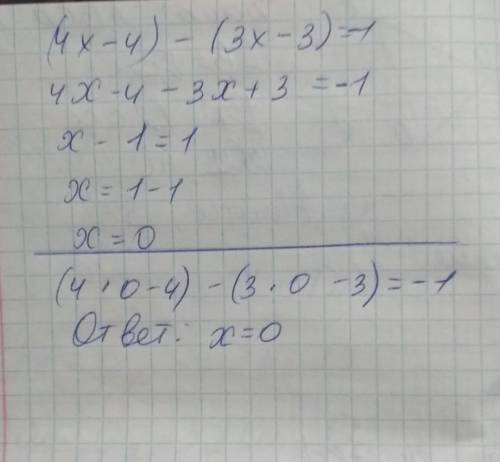 (4x-4) - (3x-3)=-1
4x-4-3x+3=-1
x-1=1
x=1-1
x=0
(4·0-4)-(3·0-3)=-1
Ответ: x=0